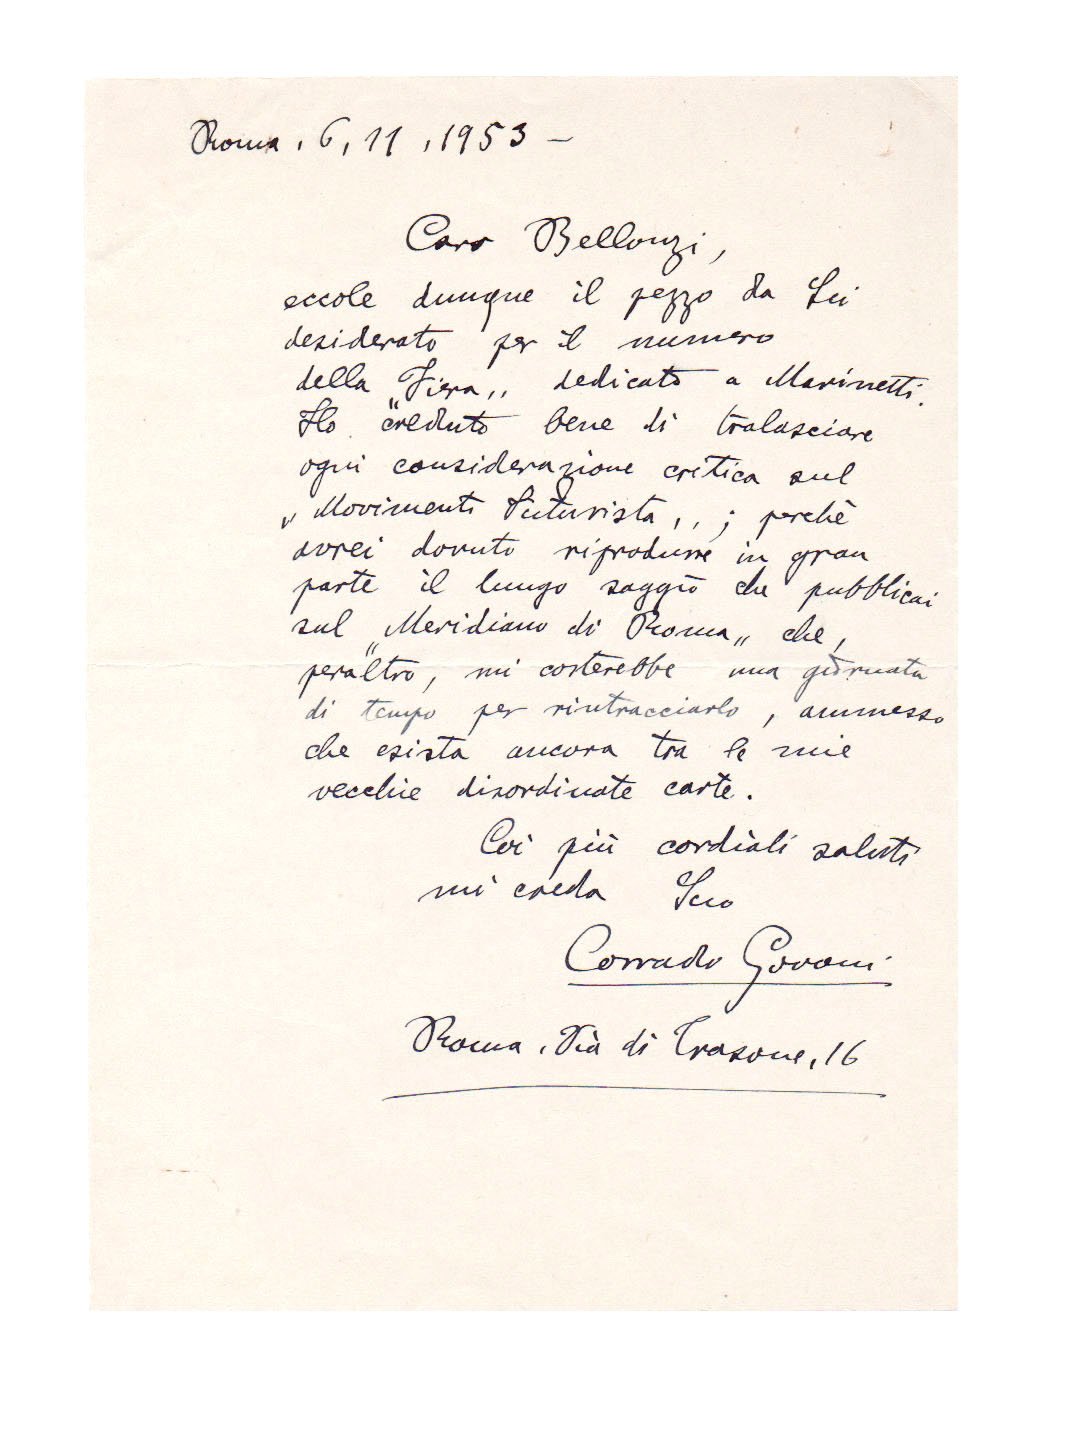 Roma, 6, 11, 1953 –
Caro Bellonzi,
eccole dunque il pezzo da Lei
desiderato per il numero
della „Fiera„ dedicato a Marinetti.
Ho creduto bene di tralasciare
ogni considerazione critica sul
„Movimento Futurista„; perchè
avrei dovuto riprodurre in gran
parte il lungo saggio che pubblicai
sul „Meridiano di Roma„ che,
peraltro, mi costerebbe una giornata
di tempo per rintracciarlo, ammesso
che esista ancora tra le mie
vecchie disordinate carte.
Coi più cordiali saluti
mi creda Suo
Corrado Govoni
Roma, Via di Trasone, 16